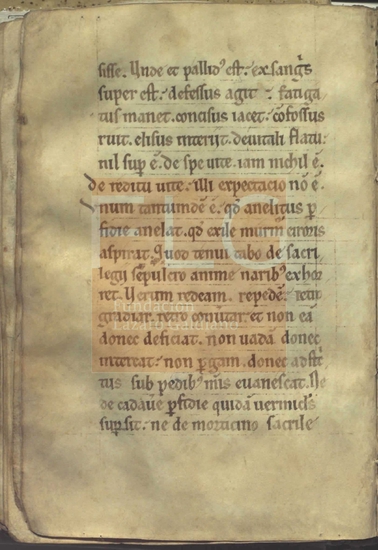 sisse. Unde et pallidꝰ est. exsanguis
super est. defessus agit. fatiga
tus manet. concisus iacet. cōfossus
ruit. elisus interiit. de vitali flatu
nil sup ē. de spe vite. iam nichil ē.
de reditu vite. illi expectacio nō ē.
num tantumdē ē. qđ anelitus p
fidie anelat. qđ exile murm erroris
aspirat. Quod tenui cubo de sacri
legii sepulcro anime naribꝰ exhor
ret. Uerum redeam. repedē. retro
gradiar. retro convtar. et non eā
donec deficiat. non vadā donec
intereat. non pgam. donec
tus sub pedibꝰ mīs evanescat. Ne
de cadave pfidie quidā vermicls
supsit. ne de morticino sacrile
Fundación
Lázaro Galdiano